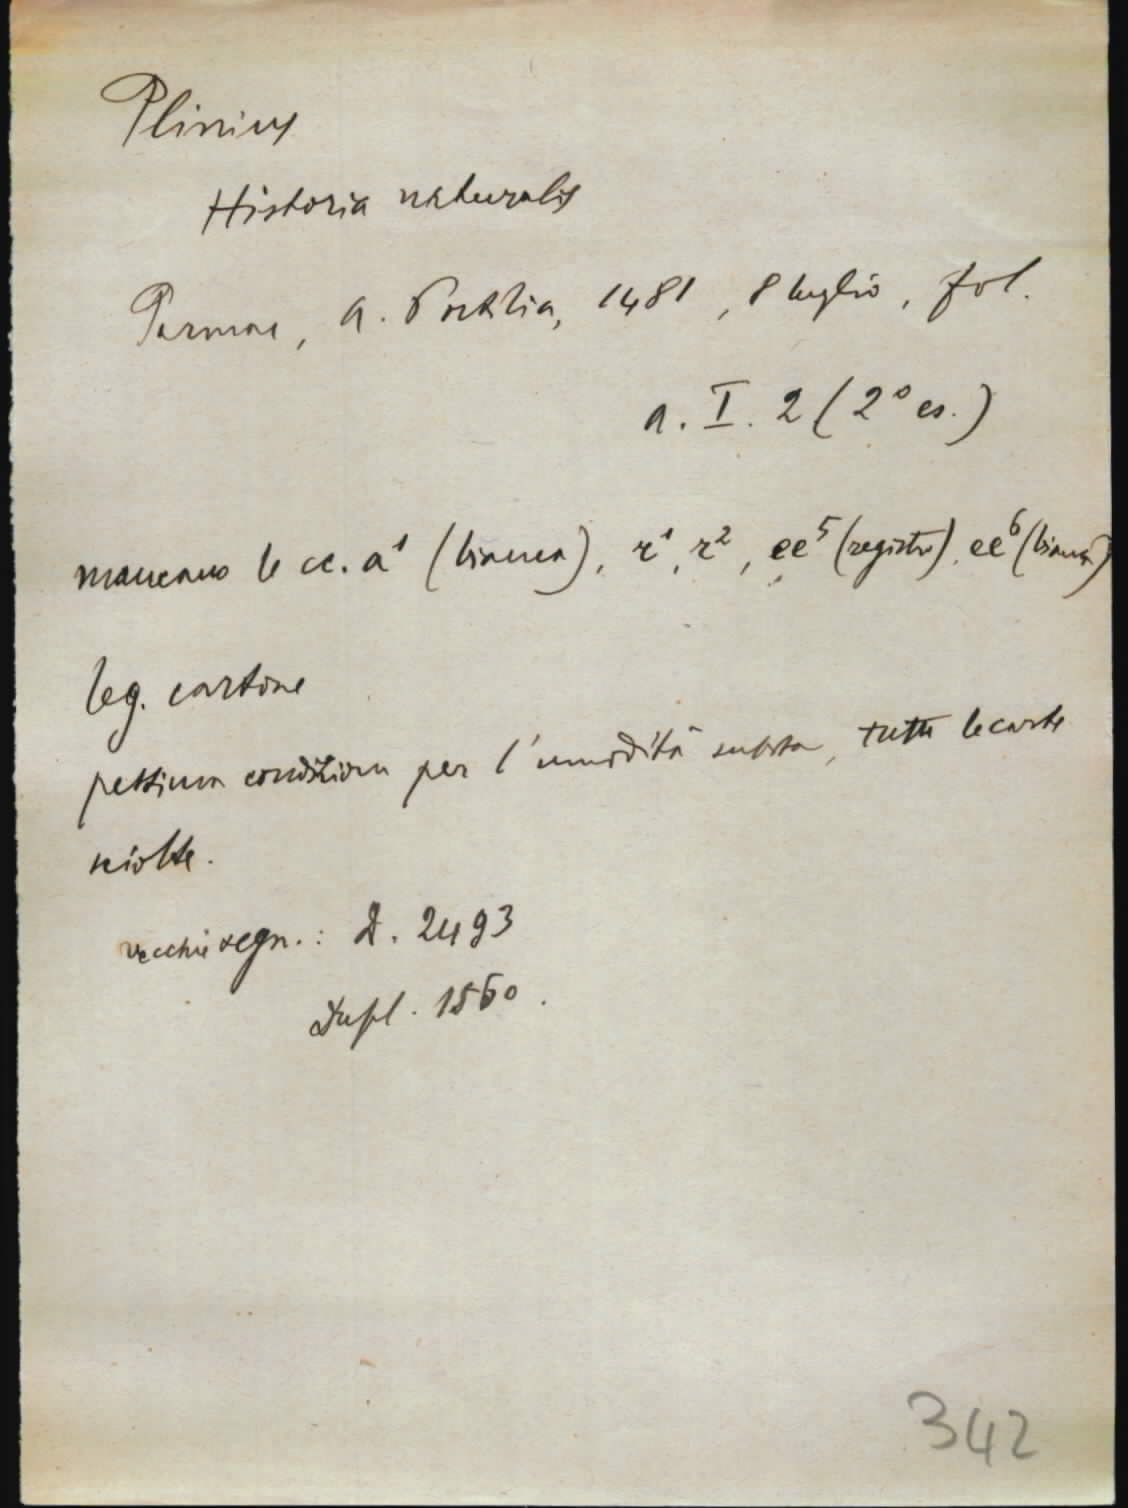 Plinius
Historia naturalis
Parmae, A. Portilia, 1481, 8 luglio, fol.
a. I. 2 (2° es.)
mancano le cc. a¹ (bianca), r¹, r², ee⁵ (registro), ee⁶ (bianca)
leg. cartone
pessima condizione per l'umidità subita, tutte le carte
sciolte.
vecchie segn.: D. 2493
Dupl. 1560.
342